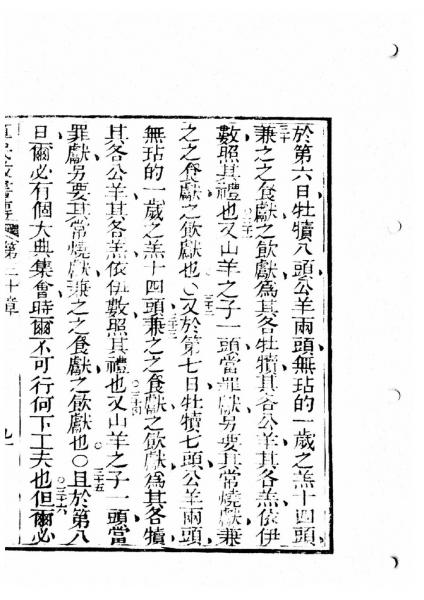 於第六日牡犢八頭公羊兩頭無玷的一歲之羔十四頭
三十
兼之之食獻之飲獻為其各牡犢其各公羊其各羔依伊
三十一
數照其禮也又山羊之子一頭當罪獻另要其常燒獻兼
三十二
之之食獻之飲獻也○又於第七日牡犢七頭公羊兩頭
三十三
無玷的一歲之羔十四頭兼之之食獻之飲獻為其各犢
三十四
其各公羊其各羔依伊數照其禮也又山羊之子一頭當
三十五
罪獻另要其常燒獻兼之之食獻之飲獻也○且於第八
三十六
日爾必有個大典集會時爾不可行何下工夫也但爾必
第二十章